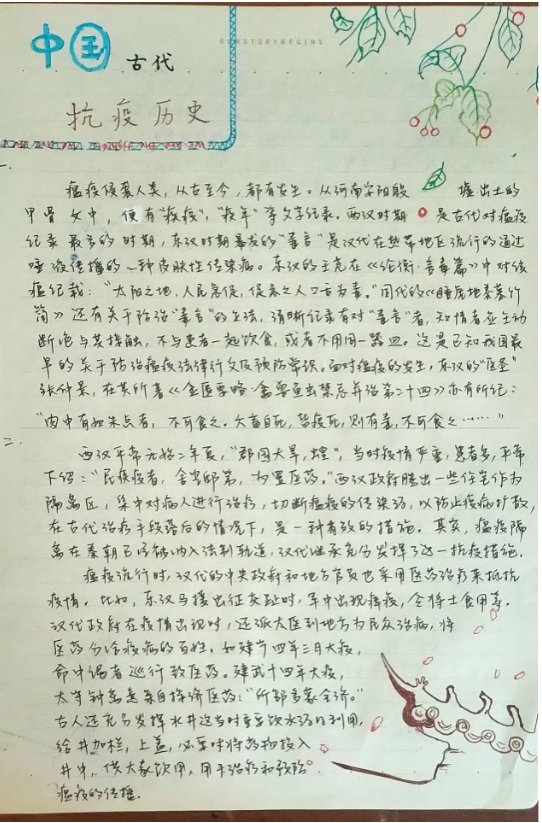 中国古代
OURSTORYBEGINS
抗疫历史
一.
瘟疫侵袭人类，从古至今，都有发生。从河南安阳殷墟出土的
甲骨文中，便有“疾疫”，“疫年”等文字纪录。两汉时期是古代对瘟疫
纪录最多的时期，东汉时期暴发的“毒言”是汉代在热带地区流行的通过
唾液传播的一种皮肤性传染病。东汉的王充在《论衡·言毒篇》中对伤
瘟纪载：“太阳之地，人民急促，促急之人口舌为毒。”同代的《睡虎地秦墓竹
简》还有关于防治“毒言”的生活，清晰纪录有对“毒言”者，知情者应主动
断绝与其接触，不与患者一起饮食，或者不用同一器皿。这是已知我国最
早的关于防治瘟疫法律行文及预防常识。面对瘟疫的发生，东汉的“医圣”
张仲景，在其所著《金匮要略·禽兽鱼虫禁忌并治第二十四》亦有所纪：
“肉中有如朱点者，不可食之。六畜自死，皆疫死，则有毒，不可食之……”
二.
西汉平帝元始二年夏，“郡国大旱，蝗”，当时疫情严重，患者多，平帝
下绍：“民疾疫者，舍空邸第，为置医药。”西汉政府腾出一些住宅作为
隔离区，集中对病人进行治疗，切断瘟疫的传染源，以防止疫病扩散，
在古代治疗手段落后的情况下，是一种有效的措施。其实，瘟疫隔
离在秦朝已经被纳入法制轨道，汉代继承充分发挥了这一抗疫措施。
瘟疫流行时，汉代的中央政府和地方官员也采用医药治疗来抵抗
疫情。比如，东汉马援出征交趾时，军中出现瘴疫，令将士食用薏
汉代政府在疫情出现时，还派太医到地方为民众治病，将
医药分给疫病的百姓。如建宁四年三月大疫，
命中谒者巡行致医药。建武十四年大疫，
太守钟离意亲自探济医药：“所部多蒙全济。”
古人还充分发挥水井这当时重要饮水源的利用，
给井加栏，上盖，必要时将药物投入
井中，供大家饮用，用于治疗和预防
瘟疫的传播.